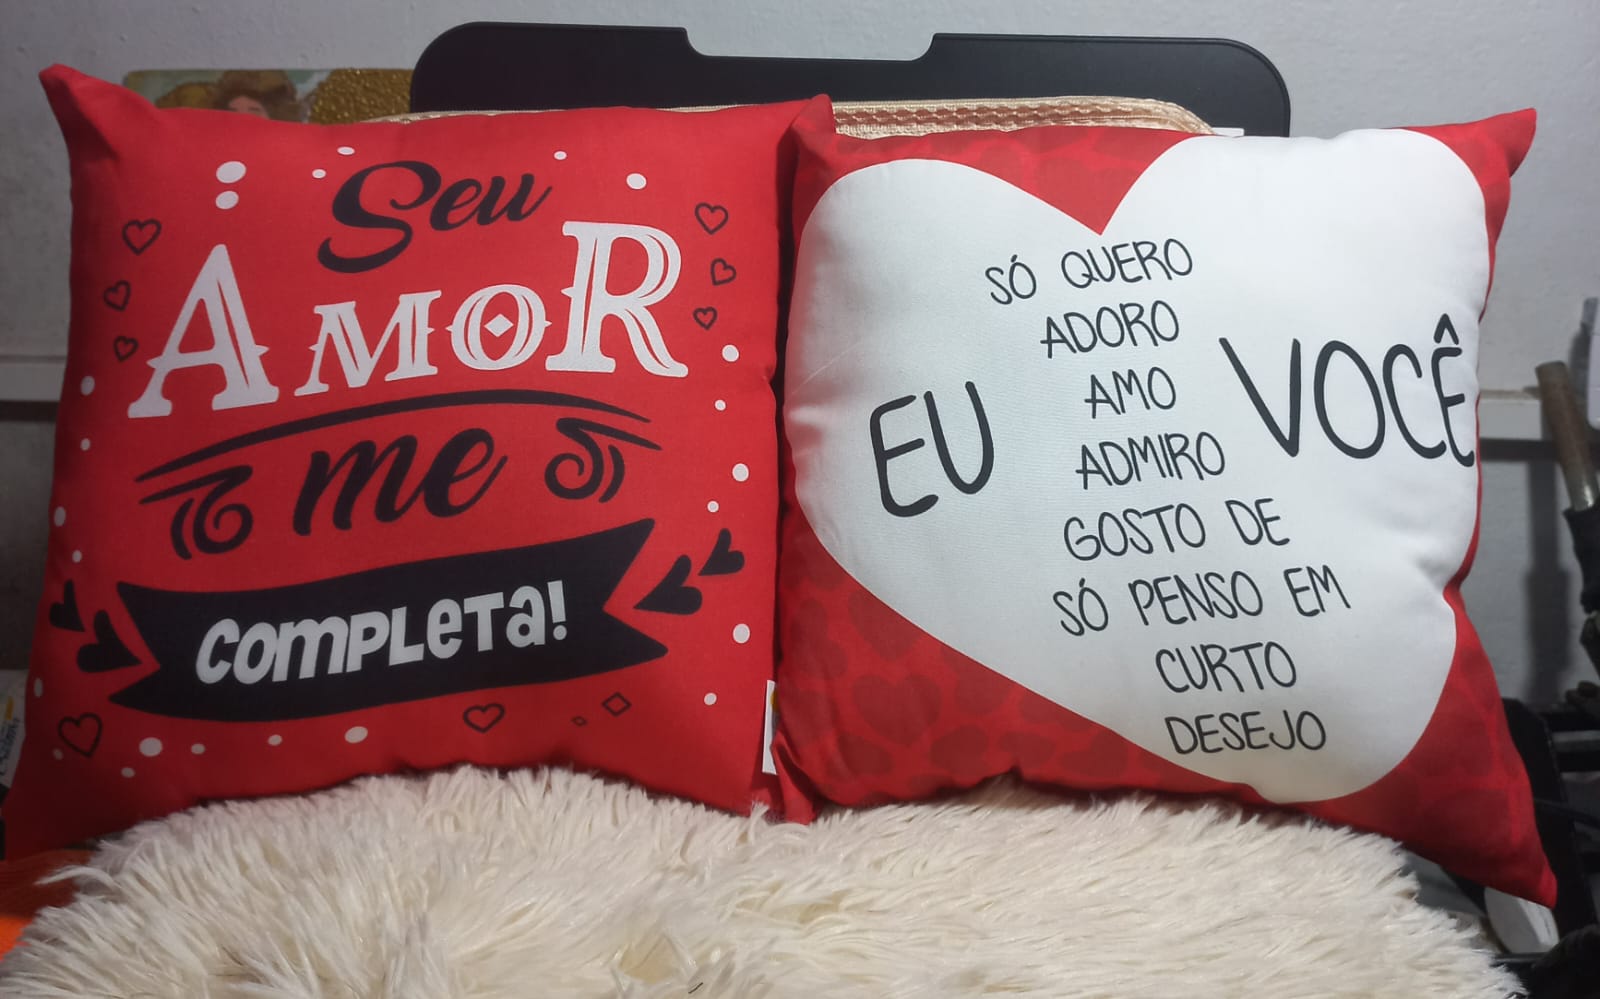 Seu
AMOR
me
COMPLETa!
SÓ QUERO
ADORO
AMO
EU
VOCÊ
ADMIRO
GOSTO DE
SÓ PENSO EM
CURTO
DESEJO